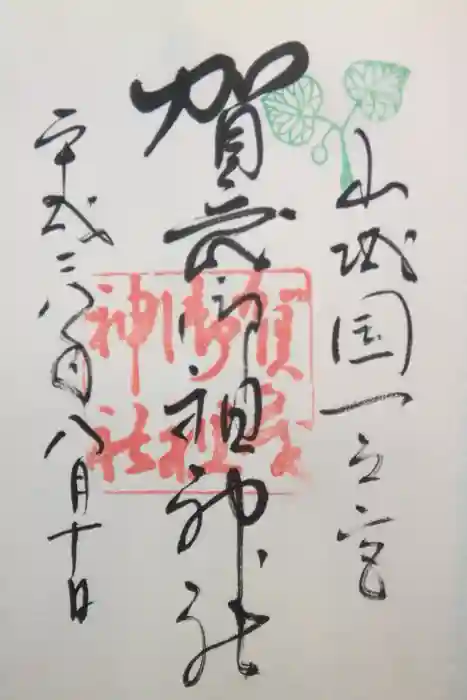 山城国一之宮
賀茂御祖神社
平成二八年八月十日
賀茂
御祖
神社